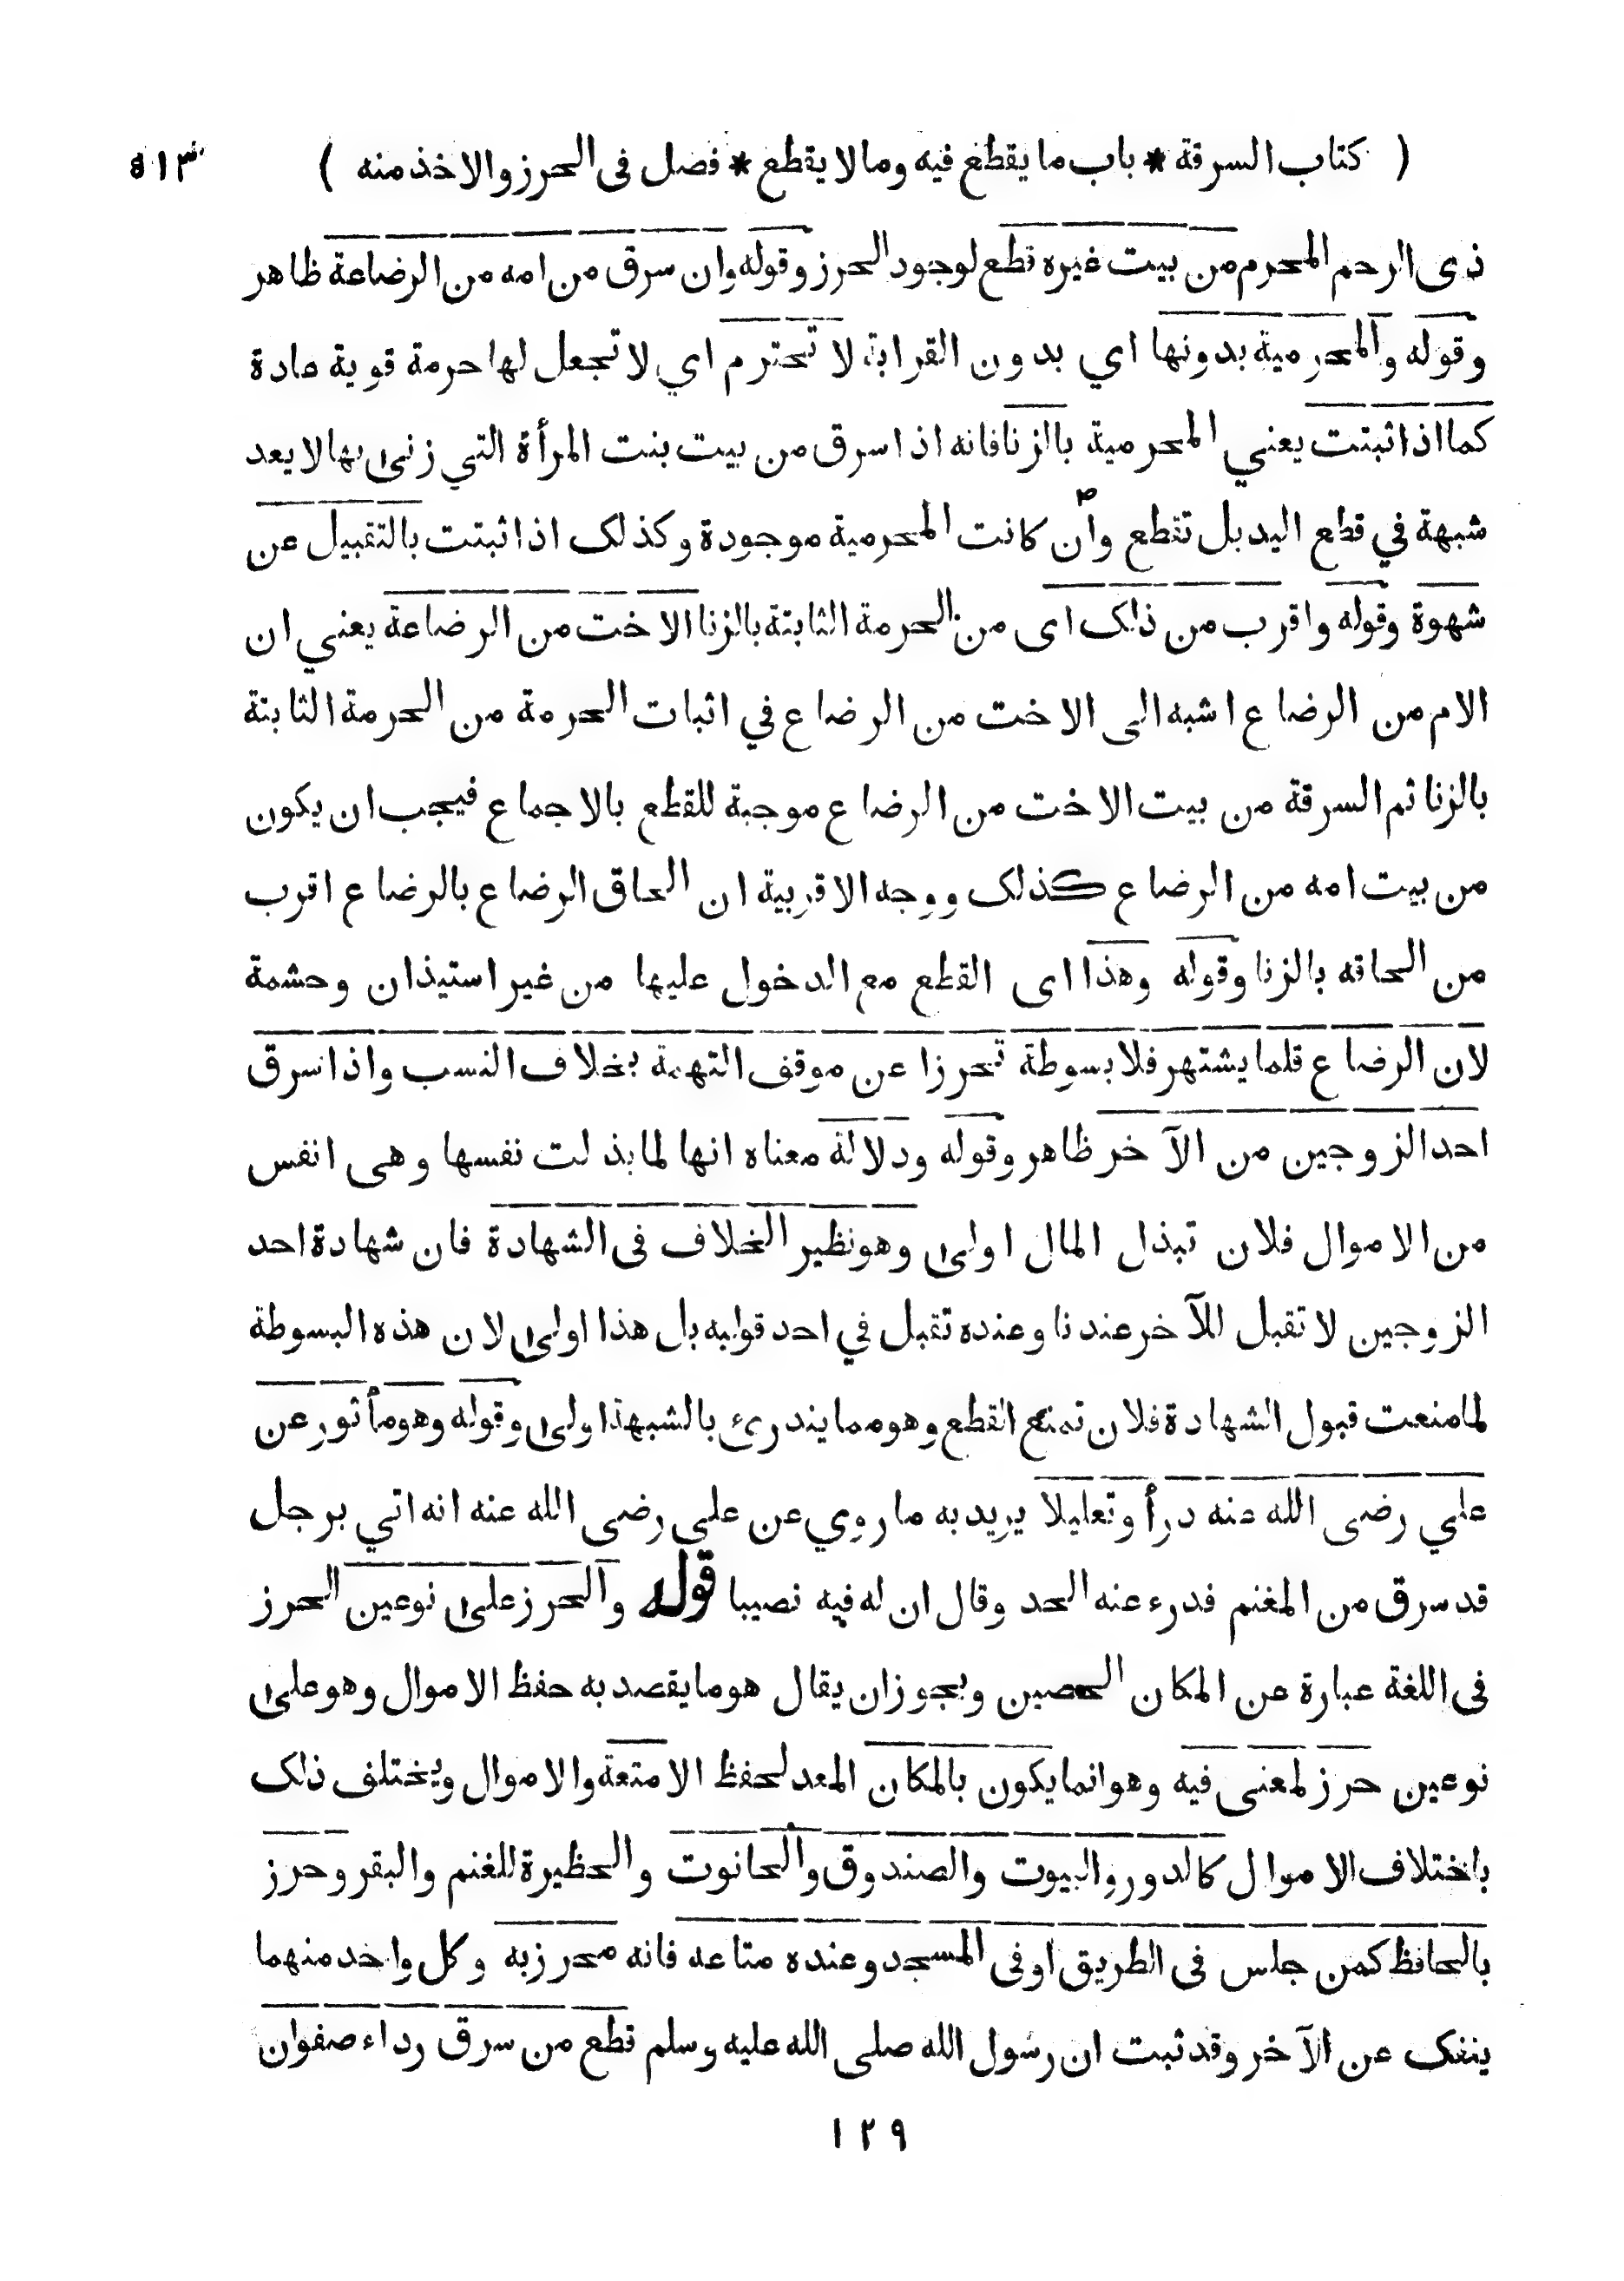 ( كتاب السرقة * باب ما يقطع فيه وما لا يقطع * فصل فى الحرز والاخذ منه ) ٥١٣
ذى الرحم المحرم من بيت غيره قطع لوجود الحرز وقوله وان سرق من امه من الرضاعة ظاهر
وقوله والمحرمية بدونها اي بدون القرابة لا تحترم اي لا تجعل لها حرمة قوية عادة
كما اذا ثبتت يعني المحرمية بالزنا فانه اذا سرق من بيت بنت المرأة التي زنى بها لا يعد
شبهة في قطع اليد بل تقطع وان كانت المحرمية موجودة وكذلك اذا ثبتت بالتقبيل عن
شهوة وقوله واقرب من ذلك اى من الحرمة الثابتة بالزنا الاخت من الرضاعة يعني ان
الام من الرضاع اشبه الى الاخت من الرضاع في اثبات الحرمة من الحرمة الثابتة
بالزنا ثم السرقة من بيت الاخت من الرضاع موجبة للقطع بالاجماع فيجب ان يكون
من بيت امه من الرضاع كذلك ووجه الاقربية ان الحاق الرضاع بالرضاع اقرب
من الحاقه بالزنا وقوله وهذا اى القطع مع الدخول عليها من غير استيذان وحشمة
لان الرضاع قلما يشتهر فلا بسوطة تحرزا عن موقف التهمة بخلاف النسب واذا سرق
احد الزوجين من الآخر ظاهر وقوله ودلالة معناه انها لما بذلت نفسها وهى انفس
من الاموال فلان تبذل المال اولى وهو نظير الخلاف فى الشهادة فان شهادة احد
الزوجين لا تقبل للآخر عندنا وعنده تقبل في احد قوليه بل هذا اولى لان هذه البسوطة
لما منعت قبول الشهادة فلان تمنع القطع وهو مما يندرئ بالشبهة اولى وقوله وهو مأثور عن
علي رضى الله عنه درأ وتعليلا يريد به ما روي عن على رضى الله عنه انه اتي برجل
قد سرق من المغنم فدرء عنه الحد وقال ان له فيه نصيبا قوله والحرز على نوعين الحرز
فى اللغة عبارة عن المكان الحصين ويجوز ان يقال هو ما يقصد به حفظ الاموال وهو على
نوعين حرز لمعنى فيه وهو انما يكون بالمكان المعد لحفظ الامتعة والاموال ويختلف ذلك
باختلاف الاموال كالدور والبيوت والصندوق والحانوت والحظيرة للغنم والبقر وحرز
بالحافظ كمن جلس فى الطريق او فى المسجد وعنده متاعه فانه محرز به وكل واحد منهما
ينفك عن الآخر وقد ثبت ان رسول الله صلى الله عليه وسلم قطع من سرق رداء صفوان
١٢٩